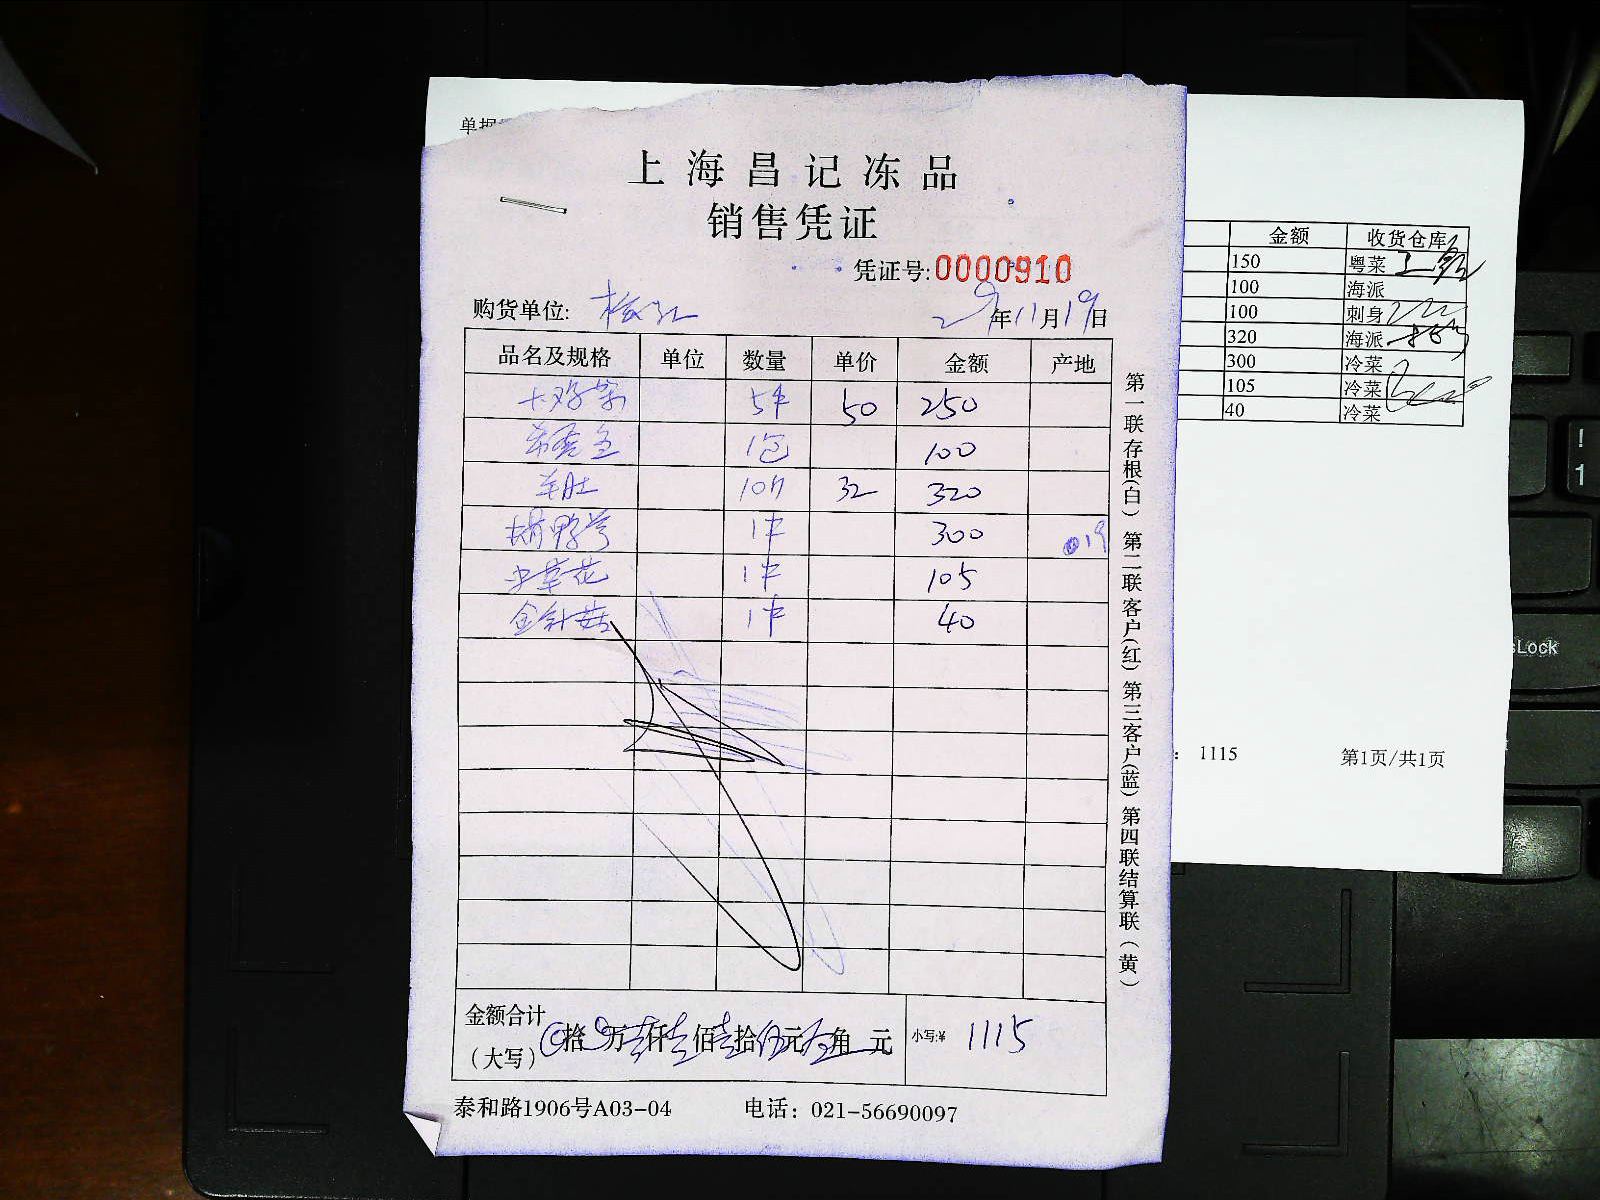 单据
上海昌记冻品
销售凭证
凭证号:0000910
购货单位:
年11月19日
品名及规格 单位 数量 单价 金额 产地
5件 50 250
1包 100
羊肚 10 32 320
鸭 1件 300
虫草花 1件 105
金针菇 1件 40
金额合计
(大写) 拾 万 仟 佰 拾 元 角 元 小写:¥ 1115
泰和路1906号A03-04 电话：021-56690097
第一联存根(白) 第二联客户(红) 第三客户(蓝) 第四联结算联(黄)
金额 收货仓库
150 粤菜
100 海派
100 刺身
320 海派
300 冷菜
105 冷菜
40 冷菜
: 1115 第1页/共1页
sLock
!
1